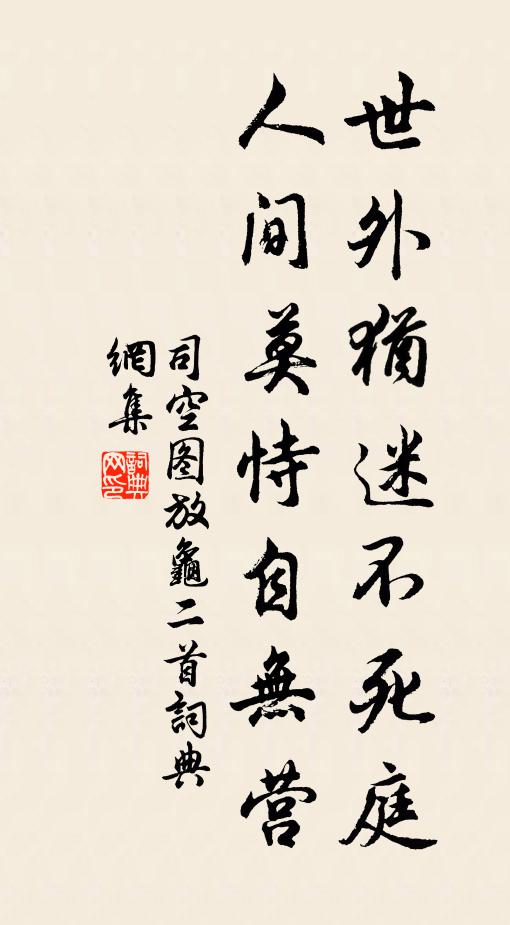 世外猶迷不死庭
人间莫恃自無营
司空图放龜二首詞典
網集
詞典网印